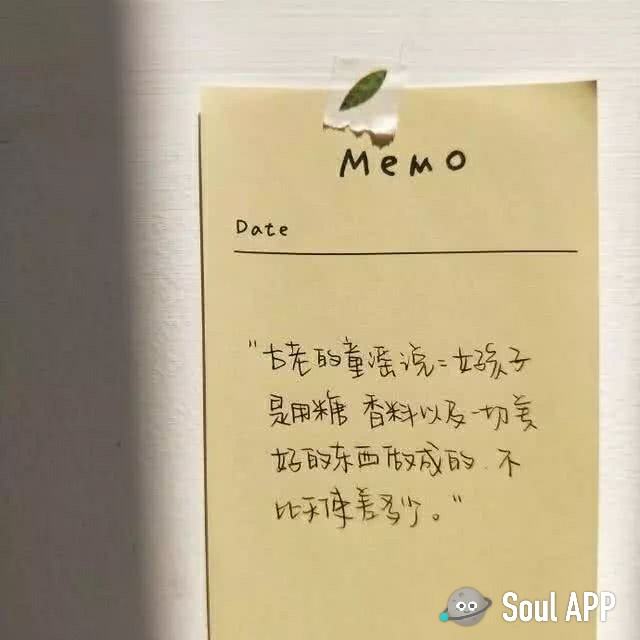 Memo
Date
“古老的童谣说：女孩子
是用糖 香料以及一切美
好的东西做成的、不
比天使差多少。”
Soul APP